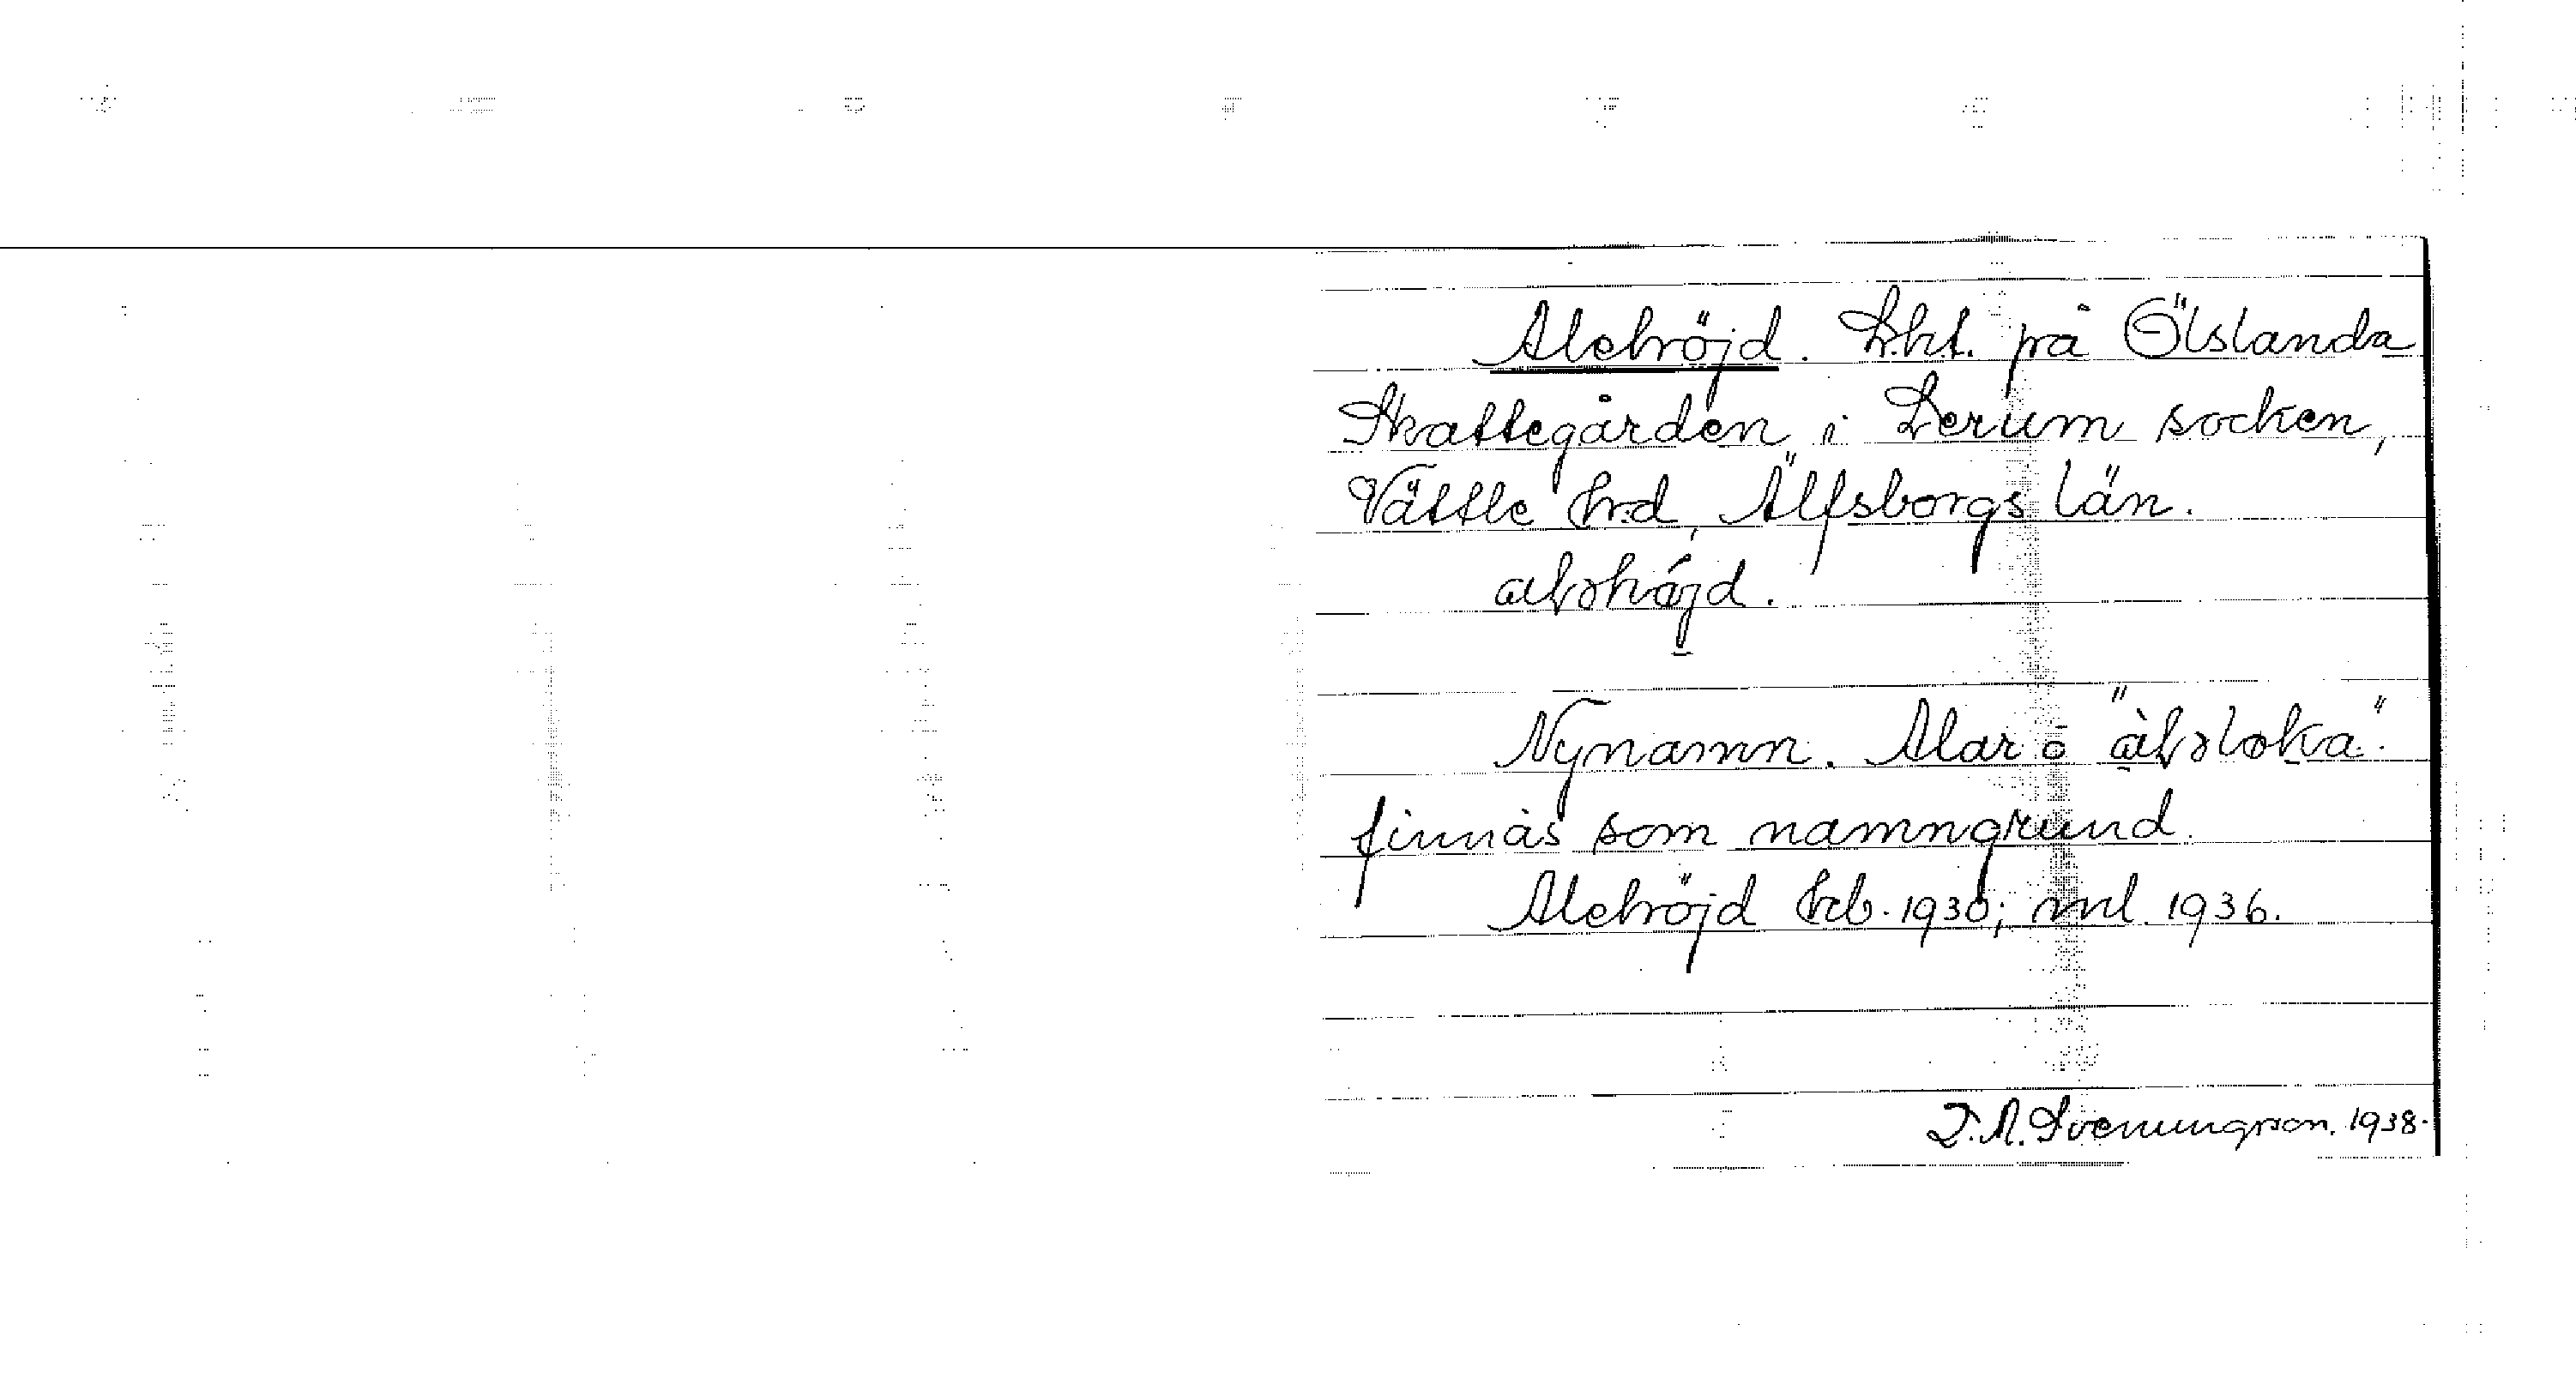 Alehöjd. Lht. på Ölslanda
Skattegården i Lerum socken,
Vättle hd, Älfsborgs län.
Nynamn. Alar o
finnas som namngrund.
Alehöjd hcb. 1930; ml. 1936.
D. A. Sveningson. 1938.